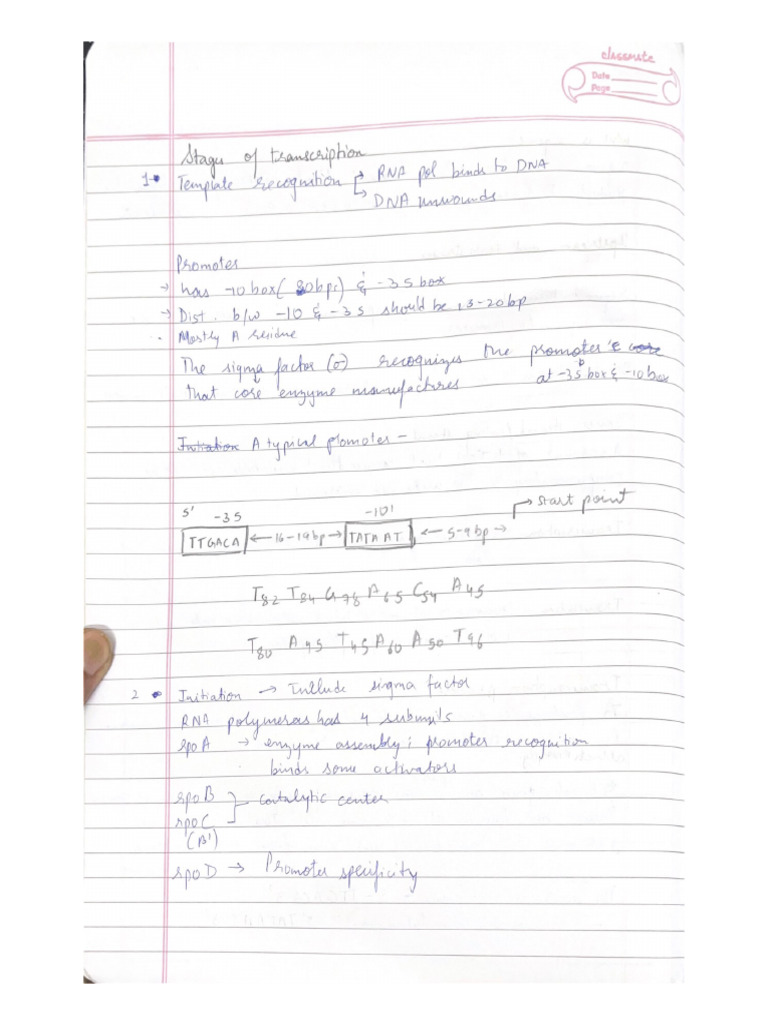 classmate
Date
Page
Stages of transcription
1• Template recognition → RNA pol binds to DNA
→ DNA unwounds
Promoter
→ has -10 box ( 80bps) & -35 box
→ Dist. b/w -10 & -35 should be 13-20bp
. Mostly A residue
The sigma factor (σ) recognizes the promoter & core
at -35 box & -10 box
that core enzyme manufactures
Initiation A typical promoter -
5' -35 -10' → start point
TTGACA ← 16-19bp → TATAAT ← 5-9bp →
T82 T84 G78 A65 C54 A45
T80 A95 T45 A60 A50 T96
2 • Initiation → Include sigma factor
RNA polymeras has 4 subunits
rpoA → enzyme assembly; promoter recognition
binds some activators
rpoB } catalytic center
rpoC
(B')
rpoD → Promoter specificity